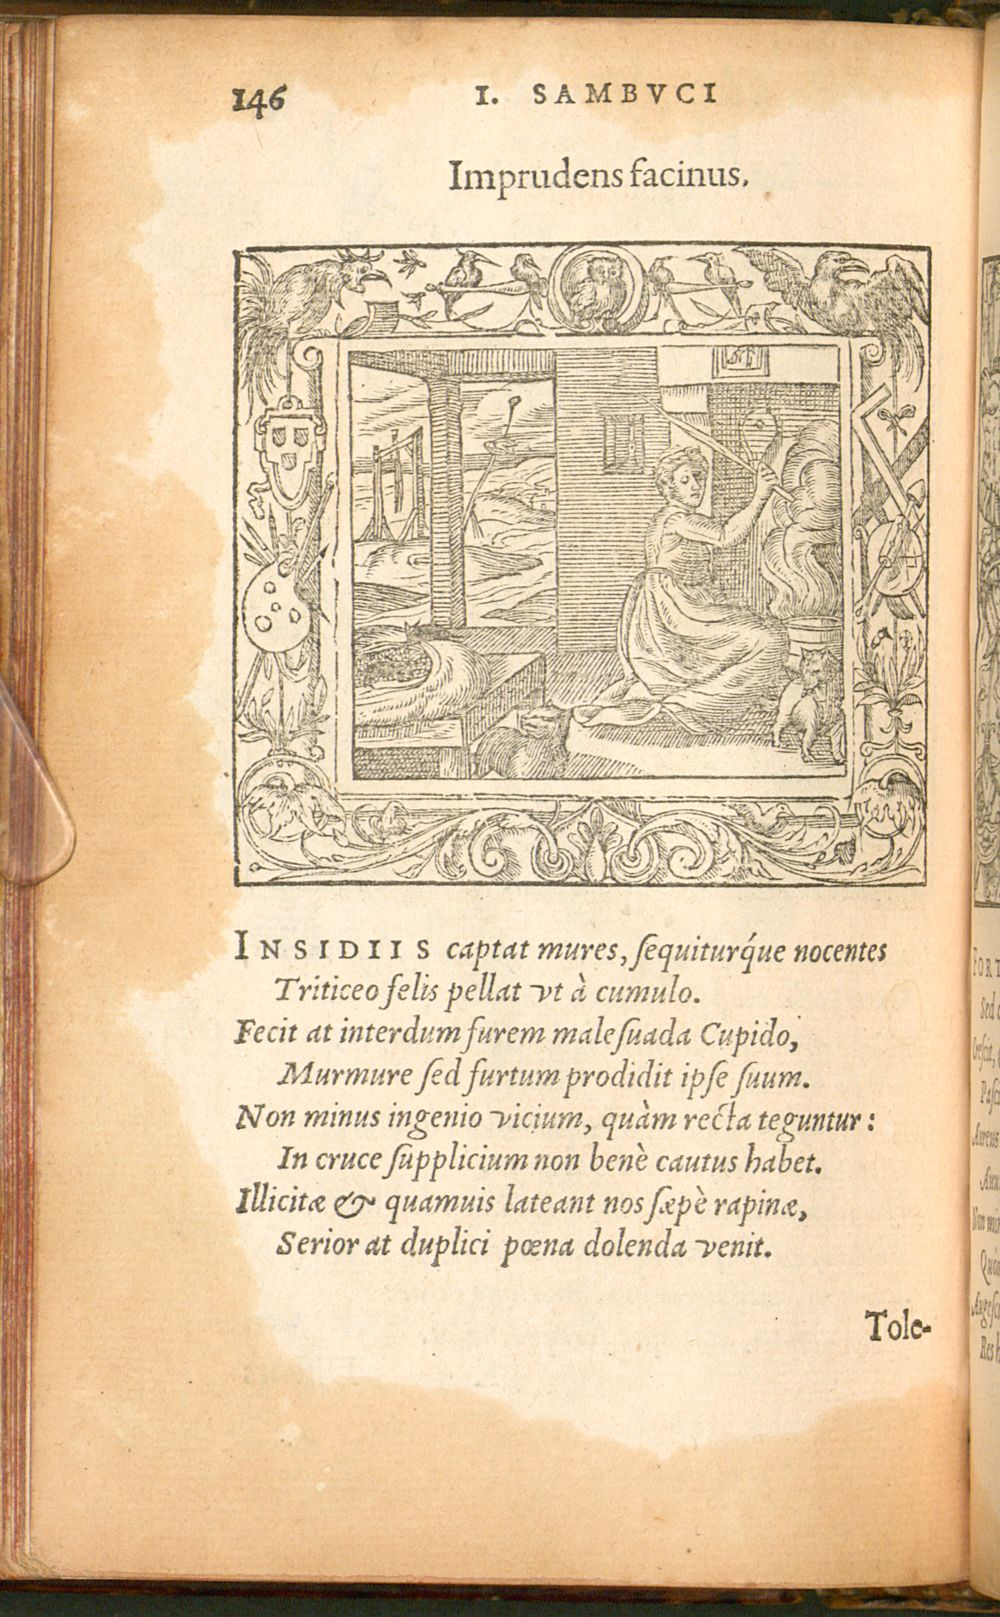 146 I. SAMBVCI
Imprudens facinus.
INSIDIIS captat mures, ſequiturq́ue nocentes
Triticeo felis pellat vt à cumulo.
Fecit at interdum furem maleſuada Cupido,
Murmure ſed furtum prodidit ipſe ſuum.
Non minus ingenio vicium, quàm recta teguntur:
In cruce ſupplicium non benè cautus habet.
Illicitæ & quamuis lateant nos ſæpè rapinæ,
Serior at duplici pœna dolenda venit.
Tole-